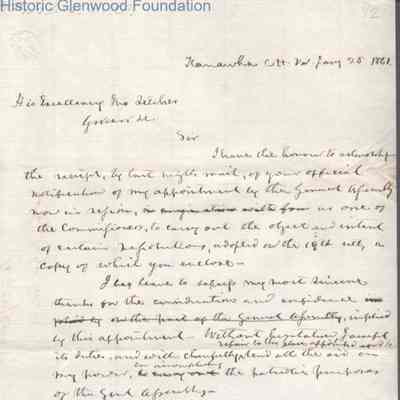 Historic Glenwood Foundation
12
Kanawha C.H. Va Jany 25 1861.
His Excellency Jno Letcher
Governor &c
Sir
I have the honour to acknowledge
the receipt, by last nights mail, of your official
notification of my appointment by the General Assembly
now in session, as one of
the Commissioners, to carry out the object and intent
of certain resolutions, adopted on the 19th ult, a
copy of which you enclose—
I beg leave to express my most sincere
thanks for the consideration and confidence
on the part of the General Assembly, implied
by this appointment— Without hesitation, I accept
repair to the place appointed
its duties, and will cheerfully lend all the aid in
my power, the patriotic purposes
of the Genl Assembly—